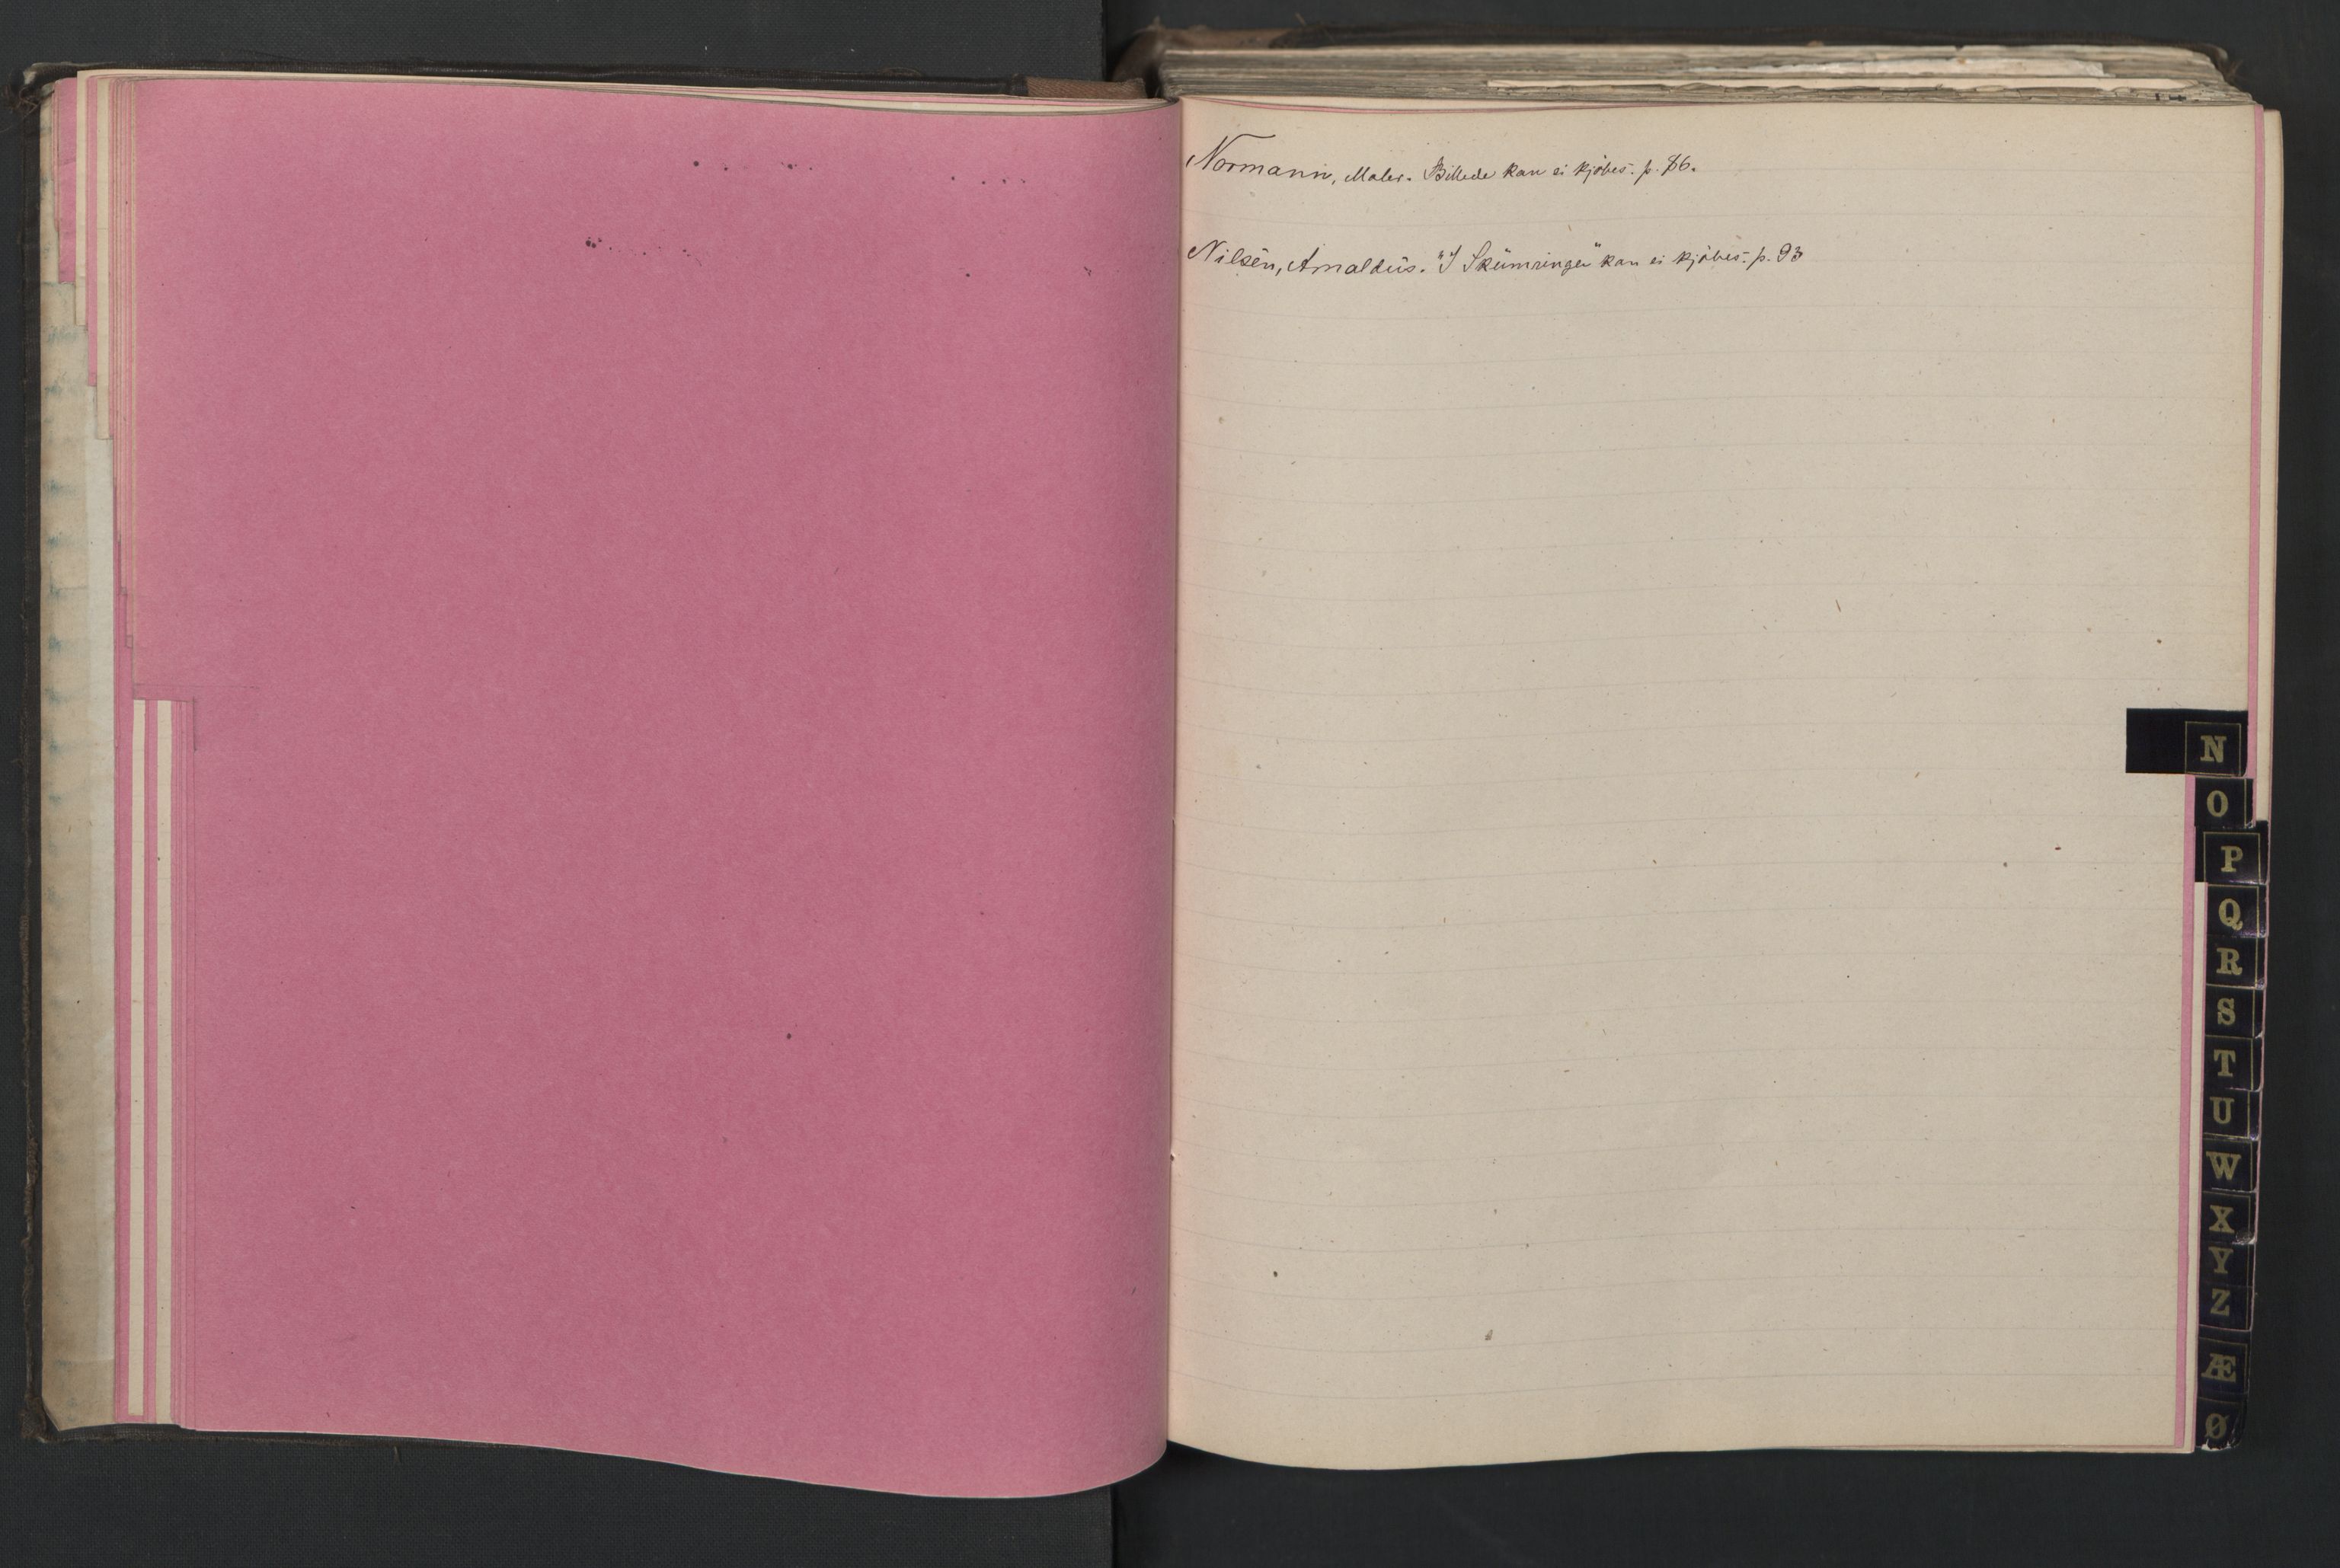 Normann, Maler. Billede kan ei kjöbes. p. 86.
Nilsen, Amaldus. "I Skumringen" kan ei kjöbes. p. 93
N
O
P
Q
R
S
T
U
W
X
Y
Z
Æ
Ø